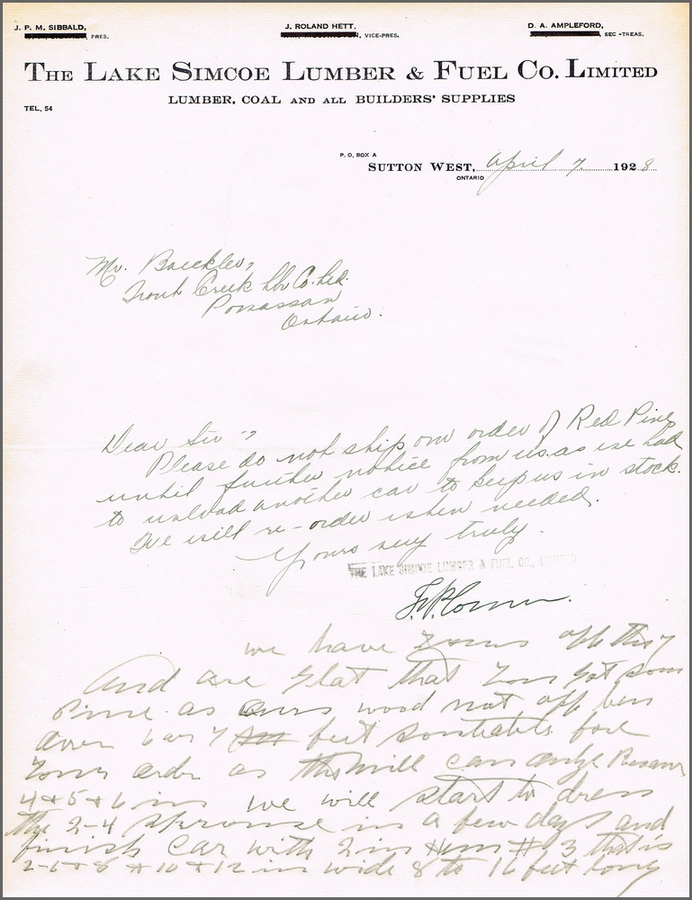 J. P. M. SIBBALD, PRES.
J. ROLAND HETT, VICE-PRES.
D. A. AMPLEFORD, SEC-TREAS.
THE LAKE SIMCOE LUMBER & FUEL CO. LIMITED
LUMBER, COAL AND ALL BUILDERS' SUPPLIES
TEL. 54
P. O. BOX A
SUTTON WEST, April 7 1928
ONTARIO
Mr.
Trout Creek Lbr Co. Ltd.
Powassan
Ontario.
Dear Sir:
Please do not ship our order of Red Pine
until further notice from us. as we had
to unload another car to keep us in stock.
We will re-order when needed.
Yours very truly.
THE LAKE SIMCOE LUMBER & FUEL CO., LIMITED
we have yours of the 7
And are glat that you got som
Pine. as ours wood not off ben
over 6 or 7 feet fore
your order as the mill can
4 + 5 + 6 in we will start to dress
the 2-4 in a few days and
finish car with 2 in # 3 that is
2-6 + 8 + 10 + 12 in wide 8 to 16 feet long